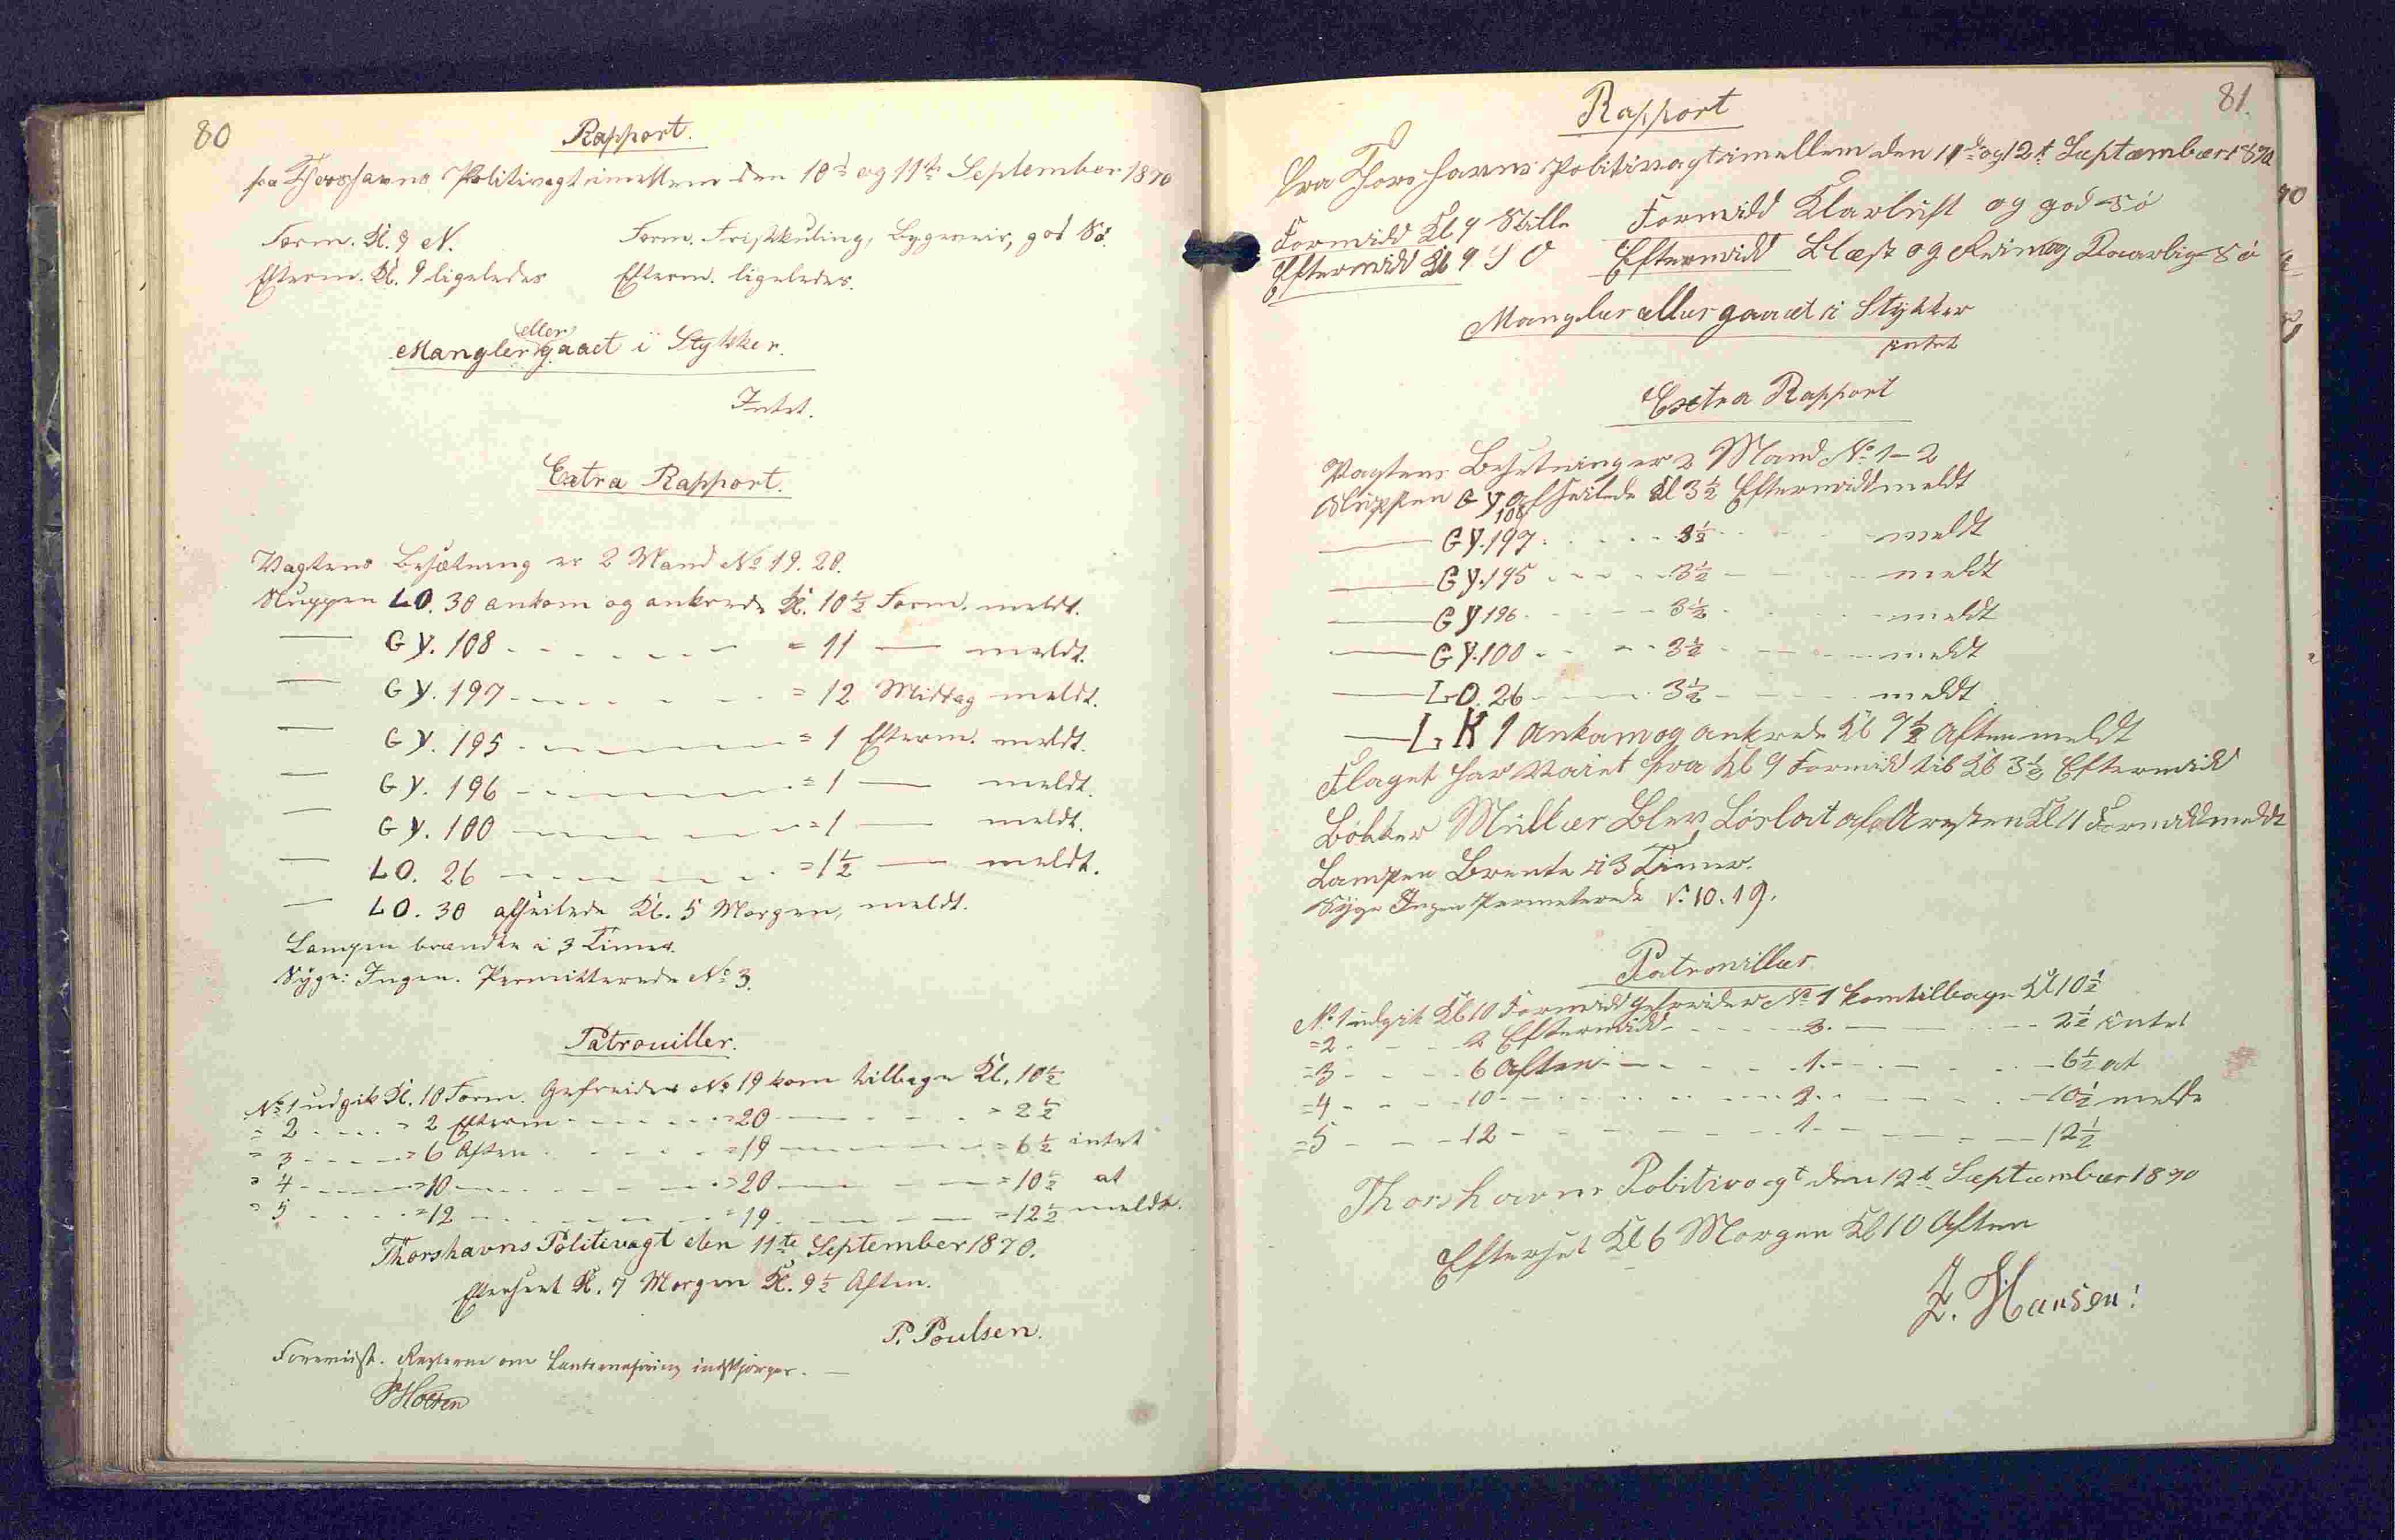 80
Rapport.
fra Thorshavns Politivagt imellem den 10d og 11te September 1870
Form. Kl. 9 N. Form. Friskkuling, Bygeveir, god Sø.
Efterm. Kl. 9 ligeledes Efterm. ligeledes.
eller
Mangler gaaet i Stykker.
Intet.
Extra Rapport.
Vagtens Besætning er 2 Mand No 19. 20.
Sluppen LO. 30 ankom og ankrede Kl. 10½ Form. meldt.
— GY. 108 - - - - - = 11 — meldt.
— GY. 197 - - - - - = 12 Middag meldt.
— GY. 195 - - - - - = 1 Efterm. meldt.
— GY. 196 - - - - - = 1 — meldt.
— GY. 100 - - - - - = 1 — meldt.
— LO. 26 - - - - - = 1½ — meldt.
— LO. 30 afseilede Kl. 5 Morgen, meldt.
Lampen brændte i 3 Timer.
Syge: Ingen. Permitterede No 3.
Patrouiller.
No 1 udgik Kl. 10 Form. Gefreider No 19 kom tilbage Kl. 10½
= 2 - - - = 2 Efterm - - - - = 20 - - - - = 2½
= 3 - - - = 6 Aften - - - - = 19 - - - - = 6½ intet
= 4 - - - = 10 - - - - = 20 - - - - = 10½ at
= 5 - - - = 12 - - - - = 19 - - - - = 12½ melde.
Thorshavns Politivagt den 11te September 1870.
Efterseet Kl. 7 Morgen Kl. 9½ Aften.
P. Poulsen.
Forevist. Reglerne om Lanterneføring indskjærpes. —
81.
Rapport
fra Thorshavns Politivagt imellem den 11te og 12t September 1870
Formidd Kl 9 Stille Formidd Klarluft og god Sø
Eftermidd Kl 9 SO Eftermidd Blæst og Rein og Daarlig Sø
Mangler eller gaaet i Stykker
intet
Extra Rapport
Vagtens Besetning er 2 Mand No 1-2
Sluppen GY 108 afseilede Kl 3½ Eftermidd meldt
— GY. 197 - - - - 3½ - - - meldt
— GY. 195 - - - - 3½ - - - meldt
— GY 196 - - - - 3½ - - - meldt
— GY. 100 - - - - 3½ - - - meldt
— LO. 26 - - - - 3½ - - - meldt
— LK 1 Ankom og ankrede Kl 9½ Aften meldt
Flaget har Vaiet fra Kl 9 Formidd til Kl 3½ Eftermidd
Bøkker Müller Blev Løslat af Aresten Kl 11 Formidd meldt
Lampen Brente i 3 Timer.
Syge Ingen Permeterede N. 10. 19.
Patrouiller
No 1 udgik Kl 10 Formidd gefreider No 1 kom tilbage Kl 10½
= 2 - - - 2 Eftermidd - - - 2 - - - 2½ intet
= 3 - - - 6 Aften - - - 1 - - - 6½ at
= 4 - - - 10 - - - 2 - - - 10½ melde
= 5 - - - 12 - - - 1 - - - 12½
Thorshavns Politivagt den 12t September 1870
Efterset Kl 6 Morgen Kl 10 Aften
Z. Hansen!